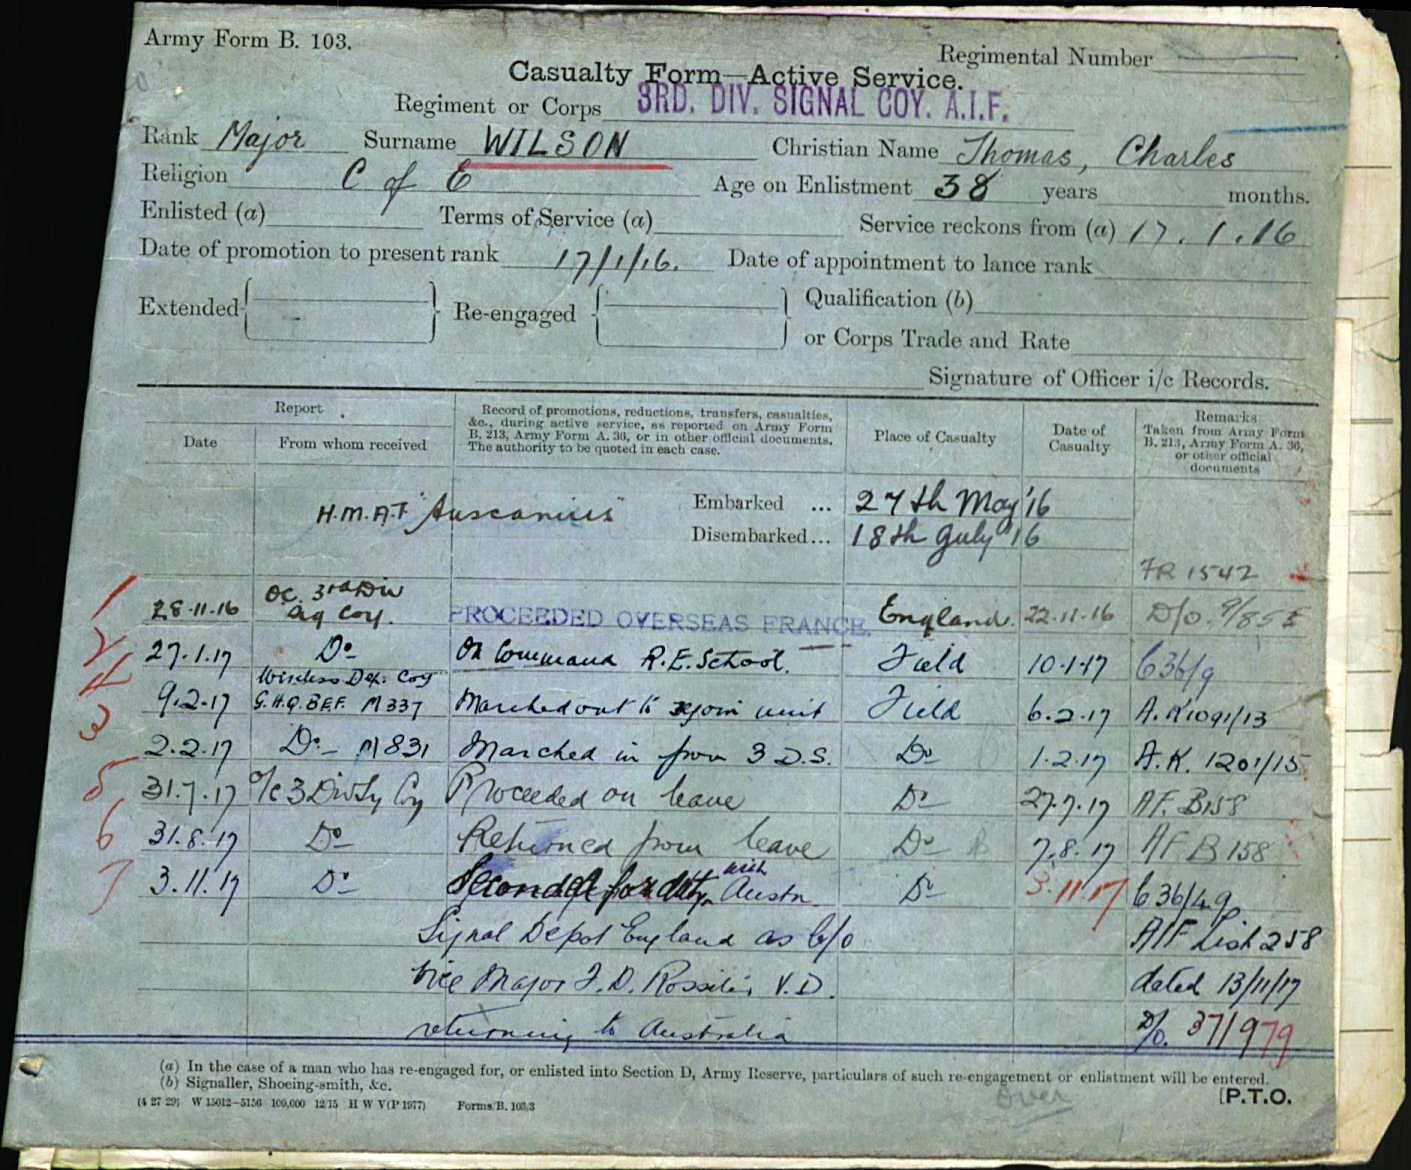 Army Form B. 103.
Regimental Number
Casualty Form—Active Service.
Regiment or Corps 3RD. DIV. SIGNAL COY. A.I.F.
Rank Major Surname WILSON Christian Name Thomas, Charles
Religion C of E Age on Enlistment 38 years months.
Enlisted (a) Terms of Service (a) Service reckons from (a) 17.1.16
Date of promotion to present rank 17/1/16. Date of appointment to lance rank
Extended Re-engaged Qualification (b)
or Corps Trade and Rate
Signature of Officer i/c Records.
Report
Date
From whom received
Record of promotions, reductions, transfers, casualties,
&c., during active service, as reported on Army Form
B. 213, Army Form A. 36, or in other official documents.
The authority to be quoted in each case.
Place of Casualty
Date of
Casualty
Remarks
Taken from Army Form
B. 213, Army Form A. 36,
or other official
documents
H.M.A.T "Auscanius" Embarked ... 27th May '16
Disembarked... 18th July '16
FR 1542
1 28.11.16 OC. 3rd Div Sig Coy. PROCEEDED OVERSEAS FRANCE. England. 22.11.16 D/o. 9/855
2 27.1.17 Do On Command R.E. School. Field 10.1.17 C36/9
4 9.2.17 Wireless Dep. Coy G.H.Q. B.E.F. M337 Marched out to rejoin unit Field 6.2.17 A.K1091/13
3 2.2.17 Do M831 Marched in from 3 D.S. Do 1.2.17 A.K. 1201/15
5 31.7.17 O/c 3 Div Sy Coy Proceeded on leave Do 27.7.17 AF. B158
6 31.8.17 Do Returned from leave Do 7.8.17 AF B158
7 3.11.17 Do Seconded for duty with Austn. Do 3.11.17 C36/49
Signal Depot England as C/o AIF List 258
vice Major F. D. Rossiter, V.D. dated 13/11/17
returning to Australia D/o. 37/979
(a) In the case of a man who has re-engaged for, or enlisted into Section D, Army Reserve, particulars of such re-engagement or enlistment will be entered.
(b) Signaller, Shoeing-smith, &c.
(4 27 29) W 15012—5156 100,000 12/15 H W V(P 1977) Forms/B. 103/3
over
[P.T.O.